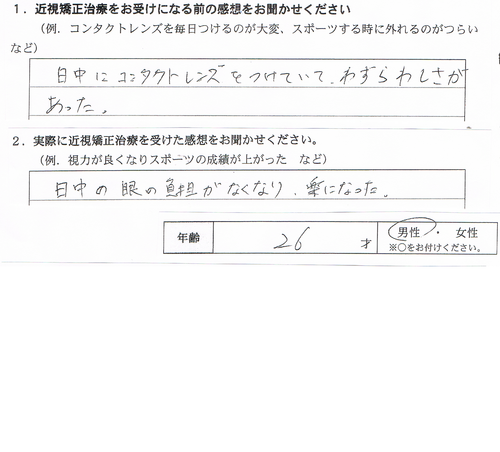 1．近視矯正治療をお受けになる前の感想をお聞かせください
（例．コンタクトレンズを毎日つけるのが大変、スポーツする時に外れるのがつらい
など）
日中にコンタクトレンズをつけていて、わずらわしさが
あった。
2．実際に近視矯正治療を受けた感想をお聞かせください。
（例．視力が良くなりスポーツの成績が上がった　など）
日中の眼の負担がなくなり、楽になった。
年齢　26　才　男性・女性
※○をお付けください。